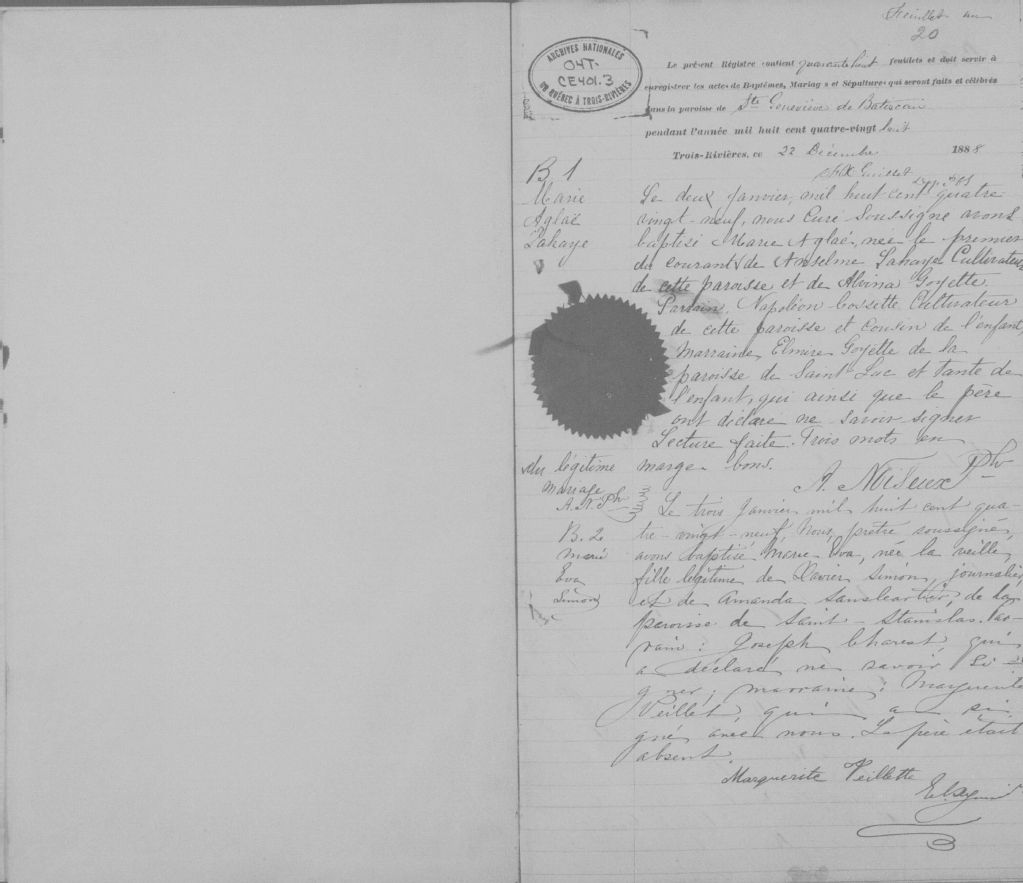 Feuillet un
20
ARCHIVES NATIONALES
04T-
CE401.3
DU QUÉBEC À TROIS-RIVIÈRES
Le présent Régistre contient quarante huit feuillets et doit servir à
enregistrer les actes de Baptêmes, Mariages et Sépultures qui seront faits et célébrés
dans la paroisse de Ste Geneviève de Batiscan
pendant l'année mil huit cent quatre-vingt huit
Trois-Rivières, ce 22 Décembre 1888
B 1
Marie
Aglaé
Lahaye
Le deux janvier, mil huit cent quatre
vingt-neuf, nous Curé soussigné avons
baptisé Marie Aglaé, née le premier
du courant de Anselme Lahaye Cultivateur
de cette paroisse et de Alvina Goyette.
Parrain, Napoléon Cossette Cultivateur
de cette paroisse et cousin de l'enfant,
Marraine, Elmire Goyette de la
paroisse de Saint-Luc et tante de
l'enfant, qui ainsi que le père
ont déclaré ne savoir signer
Lecture faite. Trois mots en
marge bons.
du légitime
mariage
A. N. Ptre
A. Noiseux Ptre
B. 2
Marie
Eva
Simon
Le trois Janvier mil huit cent qua-
tre-vingt-neuf, Nous, prêtre soussigné,
avons baptisé Marie Eva, née la veille,
fille légitime de Xavier Simon, journalier,
et de Amanda Sanscartier, de la
paroisse de Saint-Stanislas. Par-
rain: Joseph Charest, qui
a déclaré ne savoir si-
gner; marraine: Marguerite
Veillet, qui a si-
gné avec nous. Le père était
absent.
Marguerite Veillette